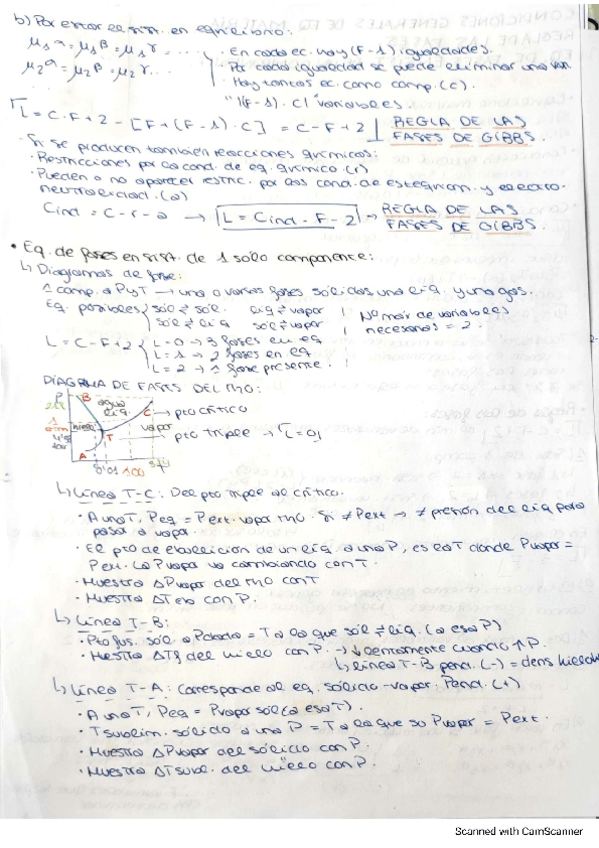 b) Por estar el sist. en equilibrio:
μ₁α = μ₁β = μ₁γ = ..... · En cada ec. hay (F-1) igualdades.
μ₂α = μ₂β = μ₂γ... · Por cada igualdad se puede eliminar una var.
· Hay tantas ec. como comp. (c).
"(F-1) · C" variables.
L = C·F+2 - [F+(F-1)·C] = C-F+2 REGLA DE LAS
FASES DE GIBBS.
· Si se producen también reacciones químicas:
· Restricciones por la cond. de eq. químico (r)
· Pueden o no aparecer restric. por las cond. de estequiom. y electro-
neutralidad. (a)
Cind = C-r-a → L = Cind - F - 2 → REGLA DE LAS
FASES DE GIBBS.
• Eq. de fases en sist. de 1 solo componente:
↳ Diagramas de fase:
1 comp. a P y T → una o varias fases sólidas una líq. y un gas.
Eq. posibles sól ⇌ sól. líq ⇌ vapor Nº máx de variables
sól ⇌ líq sól ⇌ vapor necesarias = 2.
L = C-F+2 L=0 → 3 fases en eq
L=1 → 2 fases en eq
L=2 → 1 fase presente.
DIAGRAMA DE FASES DEL H₂O:
P B agua C → pto crítico
líq.
1 atm hielo vapor
T pto triple → L=0
A
0'01 100 T
↳ Línea T-C: Del pto triple al crítico.
· A una T, Peq = Pext. vapor H₂O. Si ≠ Pext → ≠ presión del líq para
pasar a vapor.
· El pto de ebullición de un líq. a una P, es la T donde Pvapor =
Pext. La Pvapor va cambiando con T.
· Muestra ΔPvapor del H₂O con T
· Muestra ΔTeb con P.
↳ Línea T-B:
· Pto fus. sól. a P dada = T a la que sól ⇌ líq. (a esa P)
· Muestra ΔTf del hielo con P. → ↓ lentamente cuando ↑P.
↳ línea T-B pend. (-) = dens hielo
↳ Línea T-A: Corresponde al eq. sólido-vapor. Pend. (+)
· A una T, Peq = Pvapor sól (a esa T).
· T sublim. sólido a una P = T a la que su Pvapor = Pext.
· Muestra ΔPvapor del sólido con P.
· Muestra ΔTsubl. del hielo con P.
Scanned with CamScanner